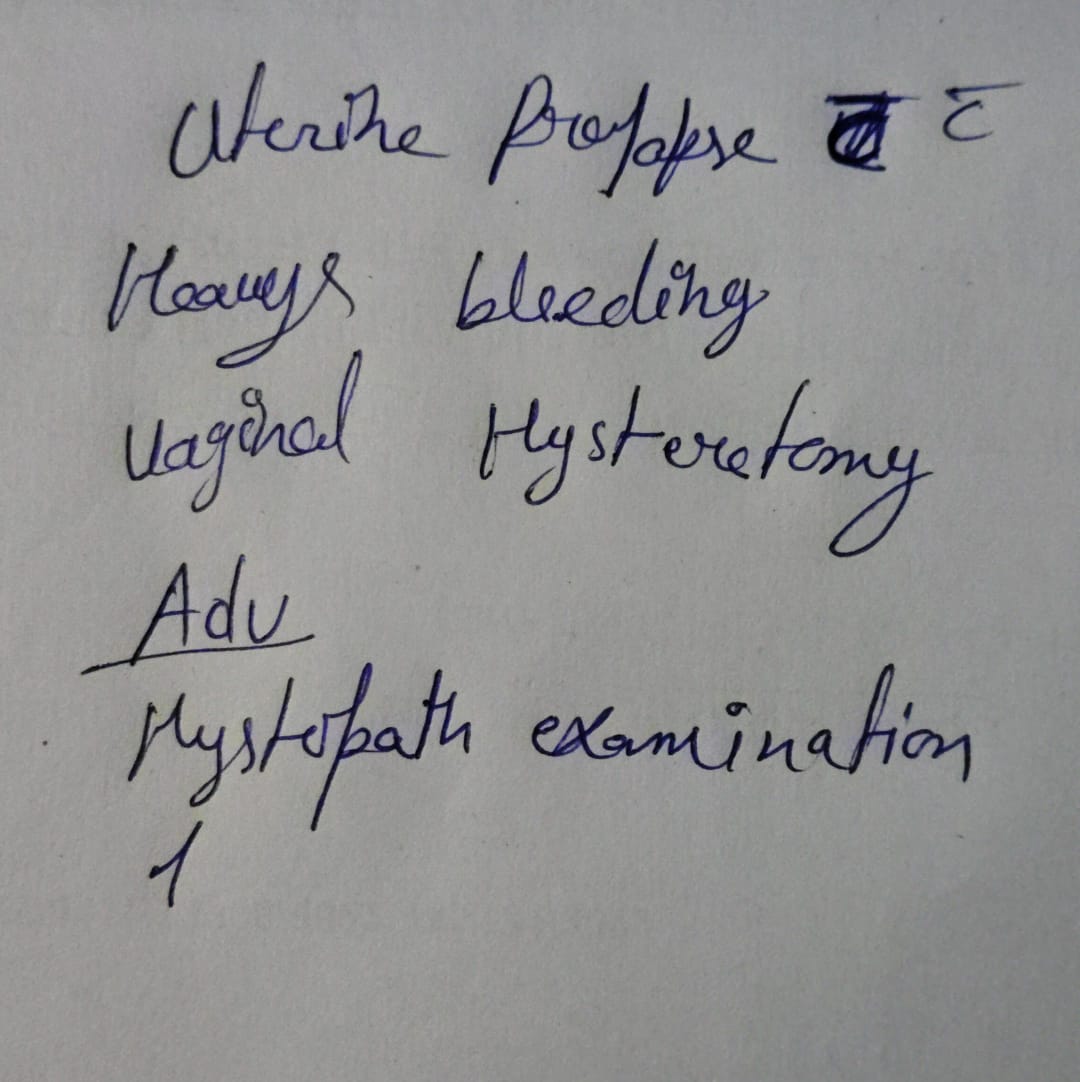 Uterine Prolapse c̄
Heavys bleeding
Vaginal Hysteretomy
Adv
Hystopath examination
1